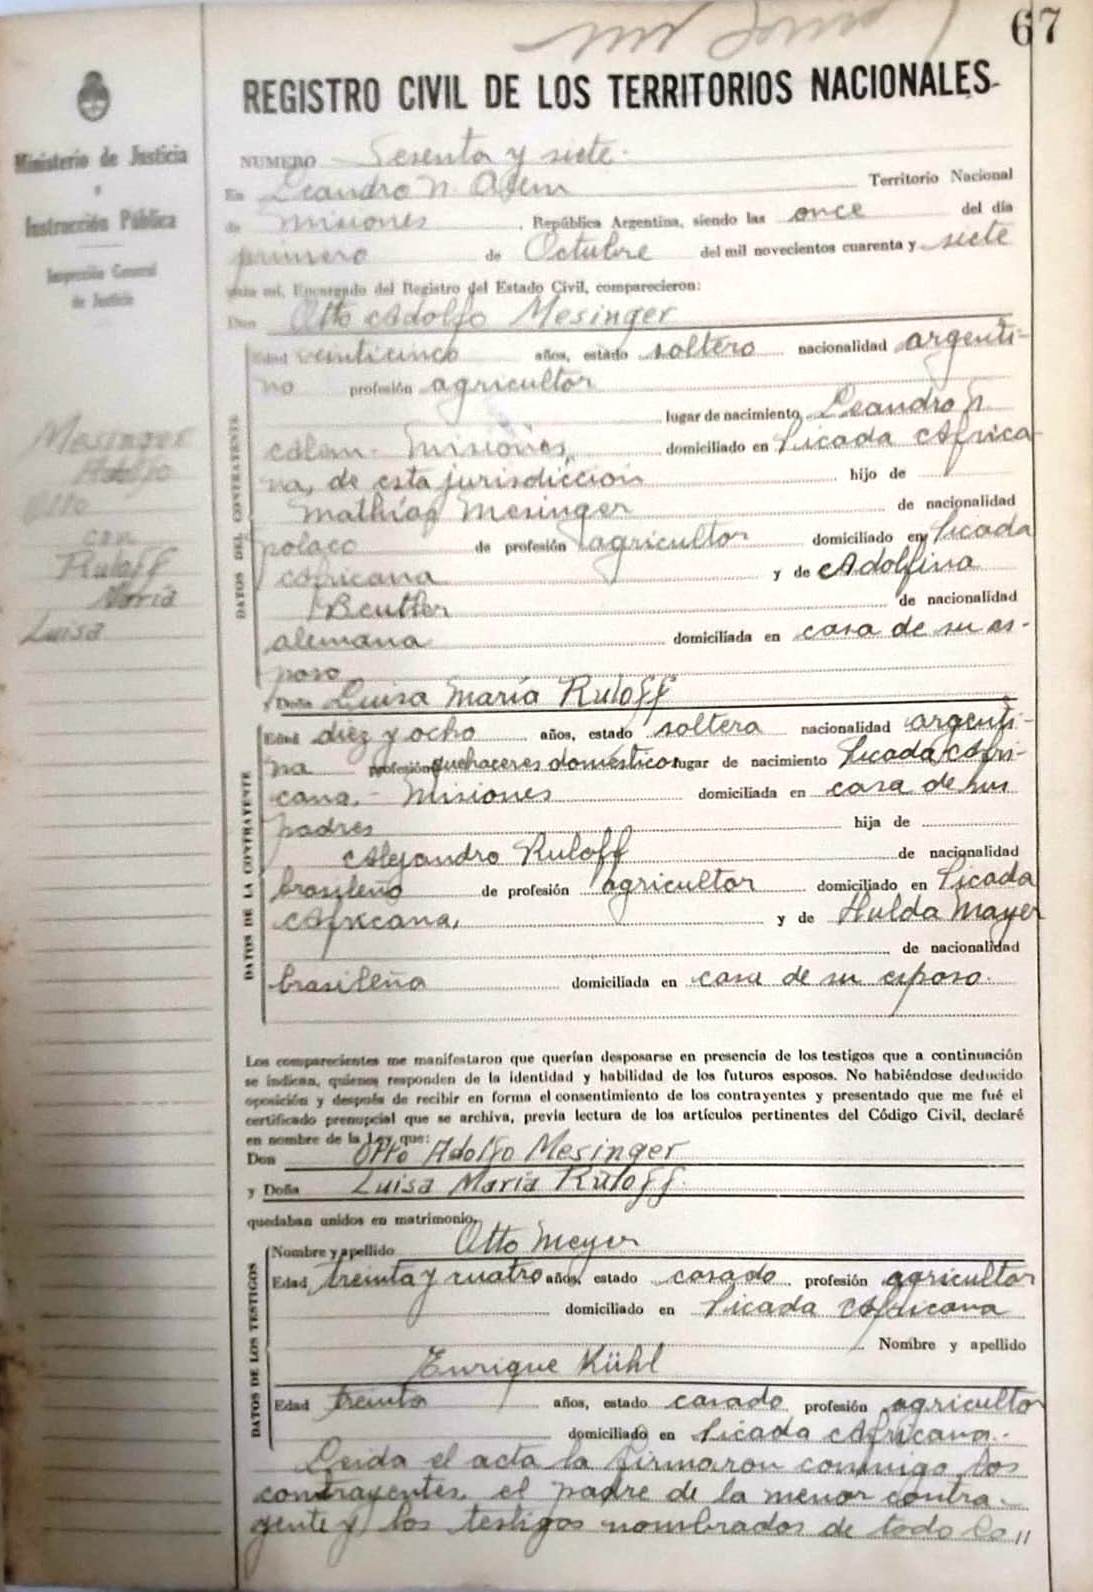 67
REGISTRO CIVIL DE LOS TERRITORIOS NACIONALES
Ministerio de Justicia
e
Instrucción Pública
Inspección General
de Justicia
NUMERO Sesenta y siete
En Leandro N. Alem Territorio Nacional
de Misiones, República Argentina, siendo las once del día
primero de Octubre del mil novecientos cuarenta y siete
ante mí, Encargado del Registro del Estado Civil, comparecieron:
Don Otto Adolfo Mesinger
Mesinger
Adolfo
Otto
con
Ruloff
María
Luisa
DATOS DEL CONTRAYENTE
Edad veinticinco años, estado soltero nacionalidad argenti-
no profesión agricultor
lugar de nacimiento Leandro N.
Alem - Misiones, domiciliado en Picada Africa
na, de esta jurisdiccion hijo de
Mathías Mesinger de nacionalidad
polaco de profesión agricultor domiciliado en Picada
Africana y de Adolfina
Beutler de nacionalidad
alemana domiciliada en casa de su es-
poso
y Doña Luisa María Ruloff
DATOS DE LA CONTRAYENTE
Edad diez y ocho años, estado soltera nacionalidad argenti-
na profesión quehaceres doméstico lugar de nacimiento Picada Afri-
cana, - Misiones domiciliada en casa de sus
padres hija de
Alejandro Ruloff de nacionalidad
brasileño de profesión agricultor domiciliado en Picada
Africana, y de Hulda Mayer
de nacionalidad
brasileña domiciliada en casa de su esposo.
Los comparecientes me manifestaron que querían desposarse en presencia de los testigos que a continuación
se indican, quienes responden de la identidad y habilidad de los futuros esposos. No habiéndose deducido
oposición y después de recibir en forma el consentimiento de los contrayentes y presentado que me fué el
certificado prenupcial que se archiva, previa lectura de los artículos pertinentes del Código Civil, declaré
en nombre de la Ley que:
Don Otto Adolfo Mesinger
y Doña Luisa María Ruloff.
quedaban unidos en matrimonio.
DATOS DE LOS TESTIGOS
Nombre y apellido Otto Meyer
Edad treinta y cuatro años, estado casado profesión agricultor
domiciliado en Picada Africana
Nombre y apellido
Enrique Kühl
Edad treinta años, estado casado profesión agricultor
domiciliado en Picada Africana.-
Leida el acta la firmaron conmigo los
contrayentes, el padre de la menor contra-
yente y los testigos nombrados de todo lo "